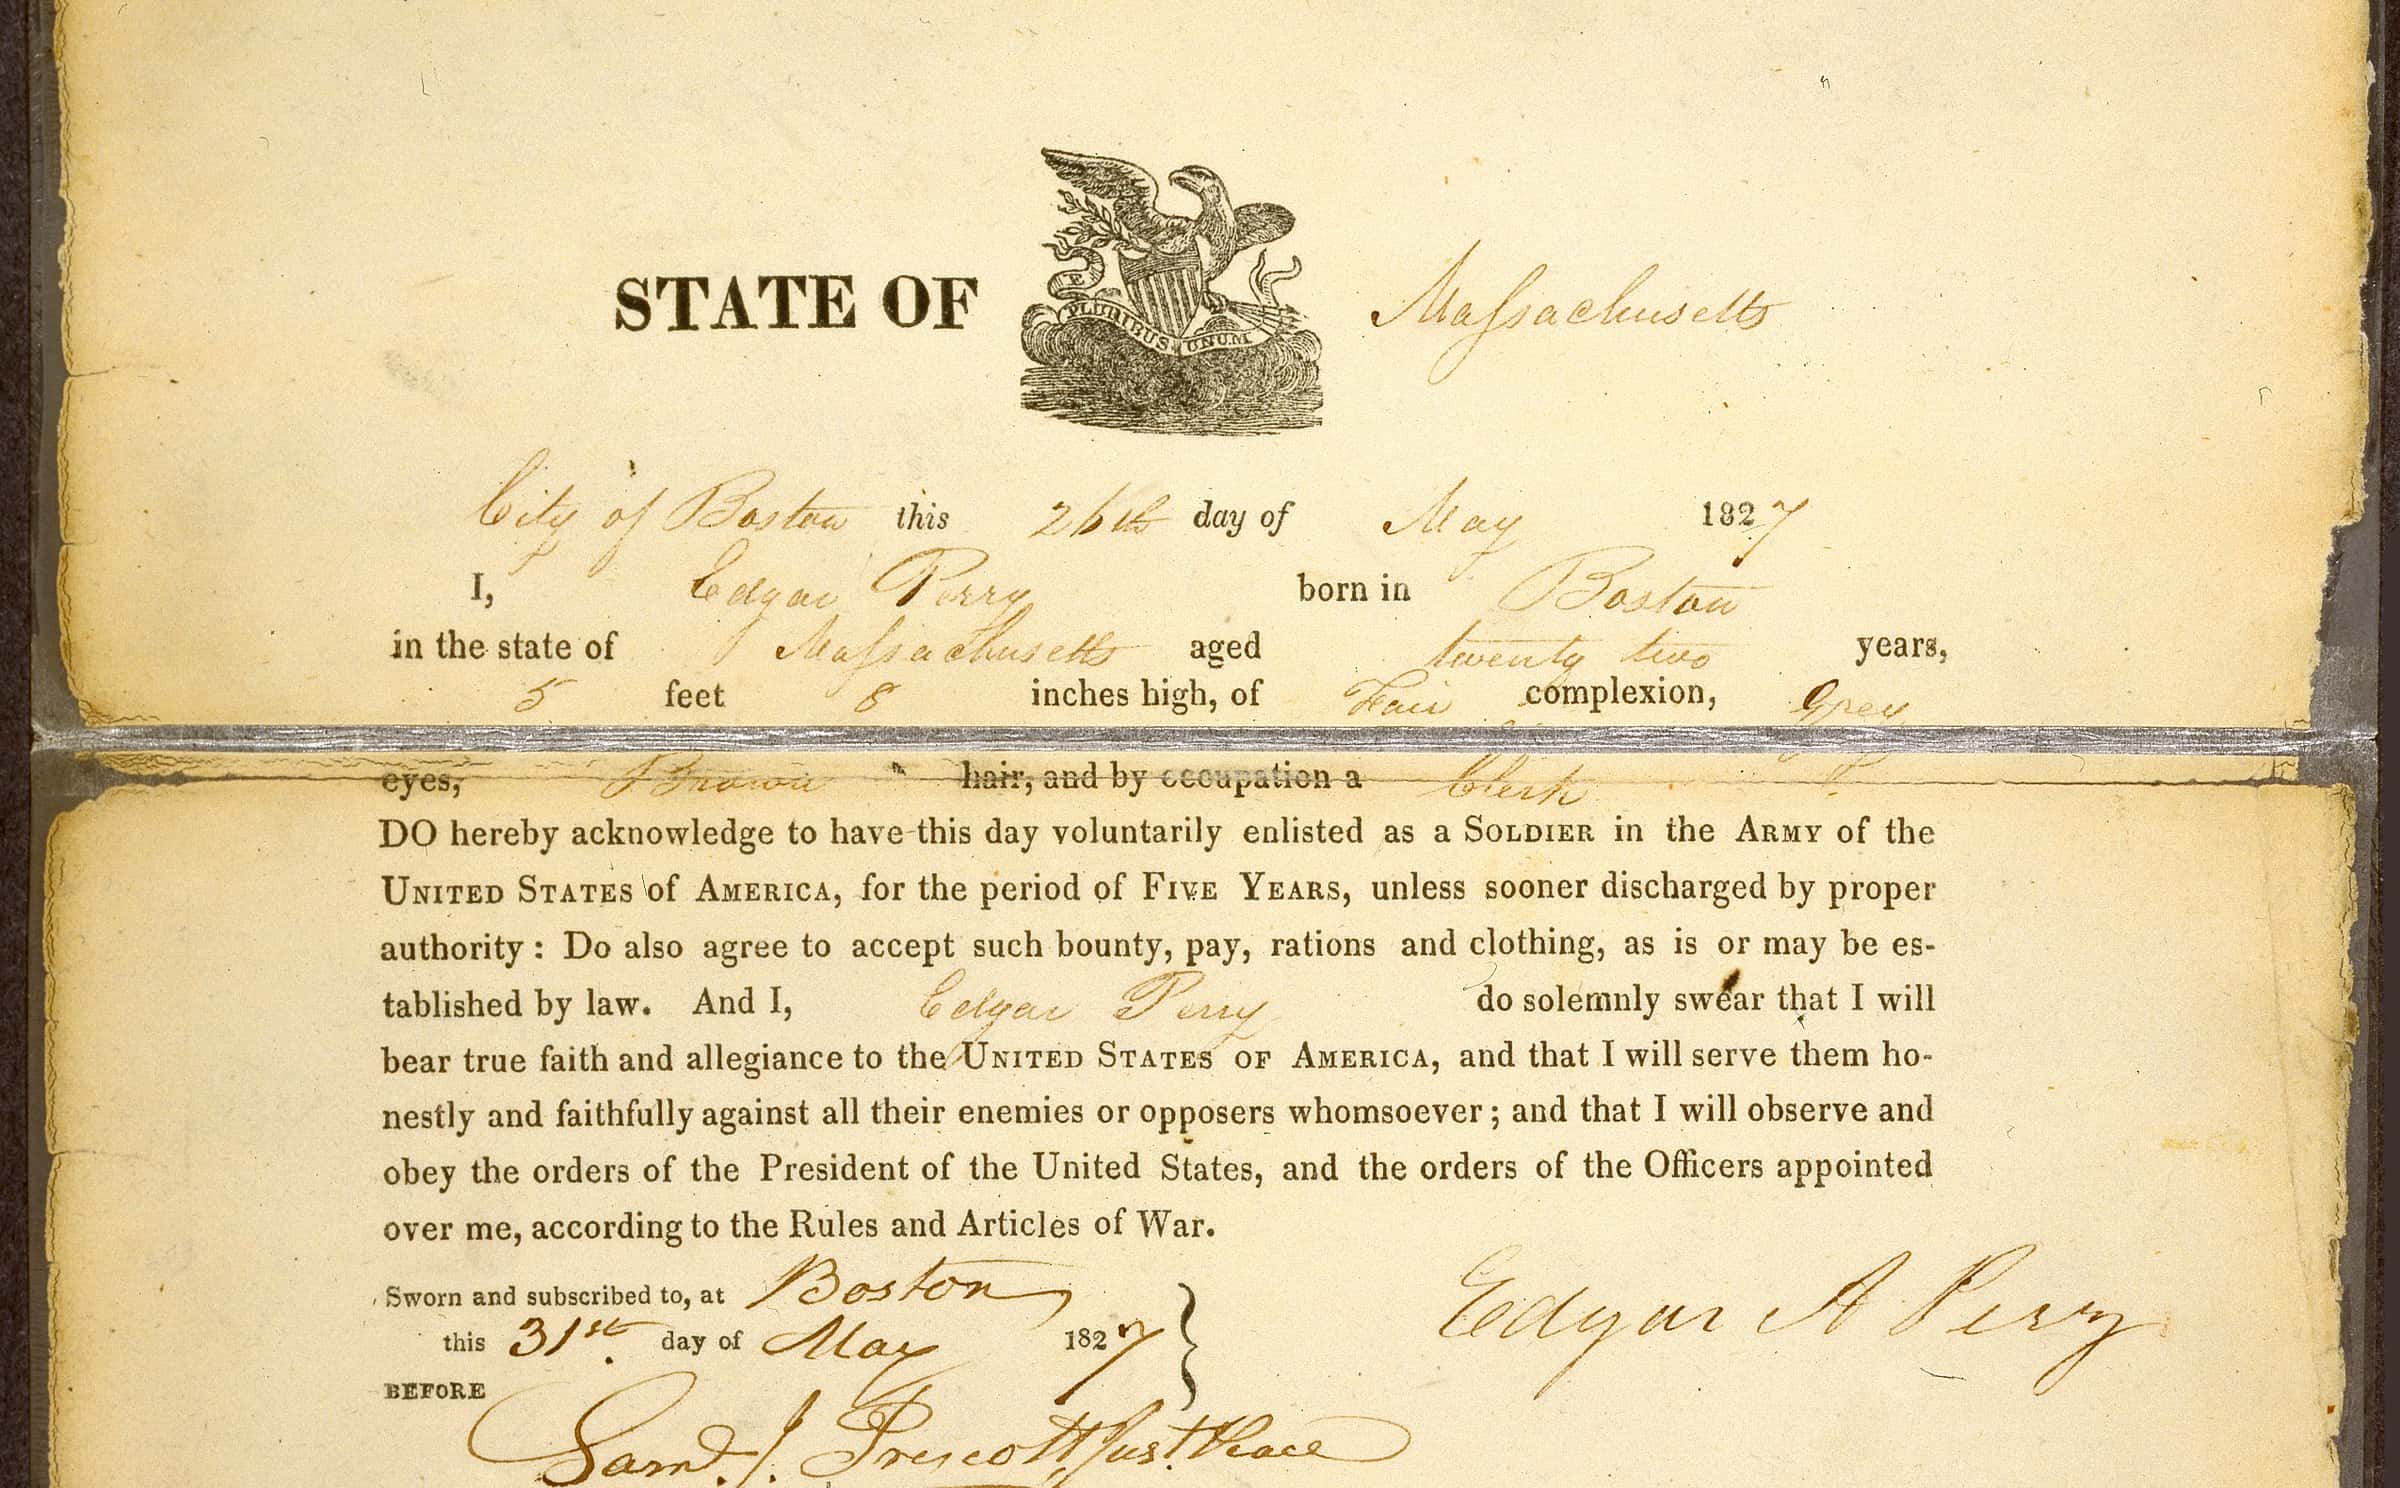 STATE OF Massachusetts
E PLURIBUS UNUM
City of Boston this 26th day of May 1827
I, Edgar Perry born in Boston
in the state of Massachusetts aged twenty two years,
5 feet 8 inches high, of Fair complexion, Grey
eyes, Brown hair, and by occupation a Clerk
DO hereby acknowledge to have this day voluntarily enlisted as a SOLDIER in the ARMY of the
UNITED STATES of AMERICA, for the period of FIVE YEARS, unless sooner discharged by proper
authority: Do also agree to accept such bounty, pay, rations and clothing, as is or may be es-
tablished by law. And I, Edgar Perry do solemnly swear that I will
bear true faith and allegiance to the UNITED STATES OF AMERICA, and that I will serve them ho-
nestly and faithfully against all their enemies or opposers whomsoever; and that I will observe and
obey the orders of the President of the United States, and the orders of the Officers appointed
over me, according to the Rules and Articles of War.
Sworn and subscribed to, at Boston
this 31st day of May 1827
Edgar A Perry
BEFORE
Saml. J. Prescott Just. Peace